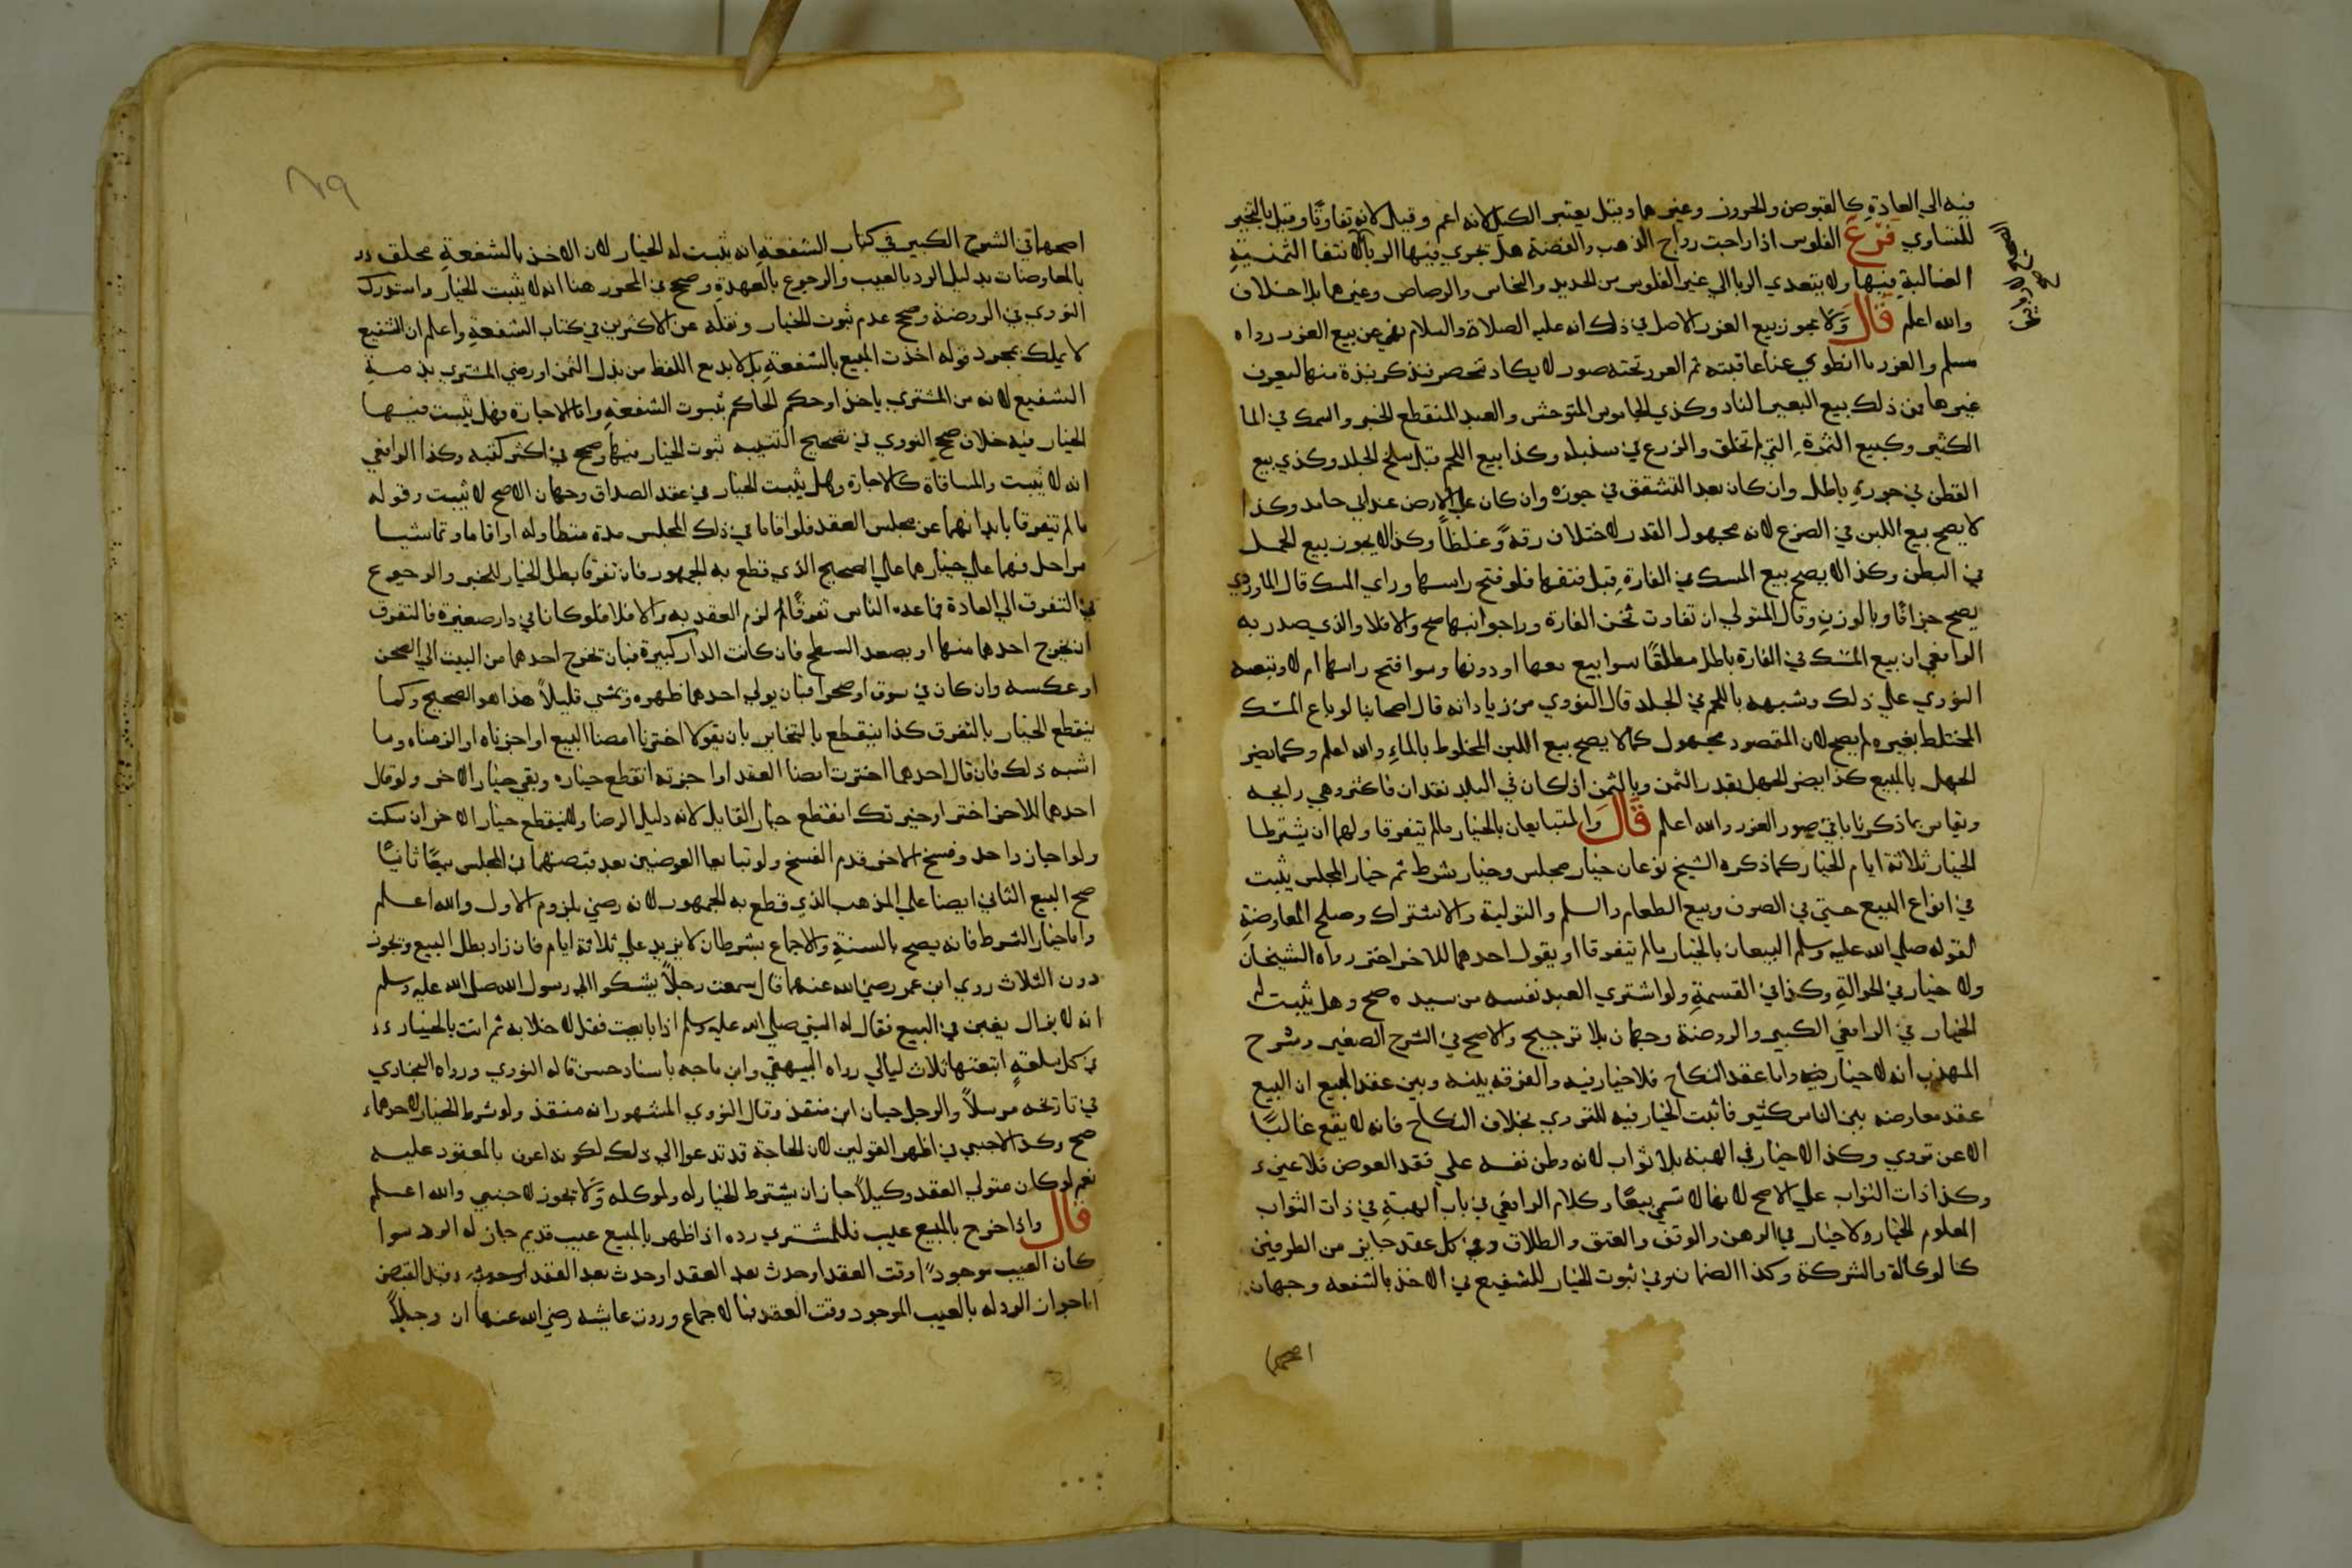 فيه الي العادة كالقبوص والحرور وغيرهما وقيل يعتبر الكيل لانه اعم وقيل لانه تفاوتا وقيل بالتخير
للتساوي فرع الفلوس اذا راجت رواج الذهب والفضة هل تجري فيها الربا لا لانتفا الثمنية
الغالبة فيها ولا يتعدي الربا الي غير الفلوس من الحديد والنحاس والرصاص وغيرها بلا خلاف
والله اعلم قال ولا يجوز بيع الغرر الاصل في ذلك انه عليه الصلاة والسلام نهي عن بيع الغرر رواه
مسلم والغرر ما انطوي عنا عاقبته ثم الغرر تحته صور لا يكاد تنحصر فنذكر نبذة منها ليعرف
غيرها فمن ذلك بيع البعير الناد وكذي الجاموس المتوحش والعبد المنقطع الخبر والسمك في الما
الكثير وكبيع الثمرة التي لم تخلق والزرع في سنبله وكذا بيع اللحم قبل سلخ الجلد وكذي بيع
القطن في جوزه باطل وان كان بعد التشقق في جوزه وان كان علي الارض عند ابي حامد وكذا
لا يصح بيع اللبن في الضرع لانه مجهول القدر لاختلاف رقة وغلظا وكذا لا يجوز بيع الحمل
في البطن وكذا لا يصح بيع المسك في الفارة قبل فتقها فلو فتح راسها وراي المسك قال الماوردي
يصح جزافا وبالوزن وقال المتولي ان تفاوت ثخن الفارة وراجوانبها صح والا فلا والذي صدر به
الرافعي ان بيع المسك في الفارة باطل مطلقا سوا بيع معها او دونها وسوا فتح راسها ام لا وتبعه
النووي علي ذلك وشبهه باللحم في الجلد قال النووي من زياداته قال اصحابنا لو باع المسك
المختلط بغيره لم يصح لان المقصود مجهول كما لا يصح بيع اللبن المخلوط بالماء والله اعلم وكما يضر
الجهل بالمبيع كذا يضر الجهل بقدر الثمن وبالثمن اذا كان في البلد نقدان فاكثر وهي رايجه
وتقاس بما ذكرنا باقي صور الغرر والله اعلم قال والمتبايعان بالخيار ما لم يتفرقا ولهما ان يشترطا
الخيار ثلاثة ايام الخيار كما ذكره الشيخ نوعان خيار مجلس وخيار شرط ثم خيار المجلس يثبت
في انواع المبيع حتي في الصرف وبيع الطعام والسلم والتولية والاشتراك وصلح المعاوضة
لقوله صلي الله عليه وسلم البيعان بالخيار ما لم يتفرقا او يقول احدهما للاخر اختر رواه الشيخان
ولا خيار في الحوالة وكذا في القسمة ولو اشتري العبد نفسه من سيده صح وهل يثبت له
الخيار في الرافعي الكبير والروضة وجهان بلا ترجيح والاصح في الشرح الصغير وشرح
المهذب انه لا خيار فيه واما عقد النكاح فلا خيار فيه والفرقه بينه وبين عقد المبيع ان البيع
عقد معاوضه بين الناس كثير فاثبت الخيار فيه للتروي بخلاف النكاح فانه لا يقع غالبا
الا عن تروي وكذا لا خيار في الهبة بلا ثواب لانه وطن نفسه علي فقد العوض فلا غبن
وكذا ذات الثواب علي الاصح لانها لا تسمي بيعا وكلام الرافعي في باب الهبة في ذات الثواب
المعلوم الخيار ولا خيار في الرهن والوقف والعتق والطلاق وفي كل عقد جايز من الطرفين
كالوكالة والشركة وكذا الضمان وفي ثبوت الخيار للشفيع في الاخذ بالشفعه وجهان
اصحهما
اصحهما في الشرح الكبير في كتاب الشفعة انه يثبت له الخيار لان الاخذ بالشفعة محلق
بالمعاوضات بدليل الرد بالعيب والرجوع بالعهدة وصحح في المحرر هنا انه لا يثبت الخيار واستدرك
النووي في الروضة وصحح عدم ثبوت الخيار ونقله عن الاكثرين في كتاب الشفعة واعلم ان الشفيع
لا يملك بمجرد قوله اخذت المبيع بالشفعة بل لا بد مع اللفظ من بذل الثمن او رضي المشتري بذمة
الشفيع لانه من المشتري ياخذ او حكم الحاكم بثبوت الشفعة واما الاجارة فهل يثبت فيها
الخيار فيه خلاف صحح النووي في تصحيح التنبيه ثبوت الخيار فيها وصحح في اكثر كتبه وكذا الرافعي
انه لا يثبت والمساقاة كالاجارة وهل يثبت الخيار في عقد الصداق وجهان الاصح لا يثبت وقوله
ما لم يتفرقا بابدانهما عن مجلس العقد فلو اقاما في ذلك المجلس مدة متطاوله او اقاما وتماشيا
مراحل فهما علي خيارهما علي الصحيح الذي قطع به الجمهور فان تفرقا بطل الخيار للخبر والرجوع
في التفرق الي العادة فما عده الناس تفرقا لزم العقد به والا فلا فلو كانا في دار صغيرة فالتفرق
ان يخرج احدهما منها او يصعد السطح فان كانت الدار كبيرة فبان يخرج احدهما من البيت الي الصحن
او عكسه وان كان في سوق او صحرا فبان يولي احدهما ظهره ويمشي قليلا هذا هو الصحيح وكما
ينقطع الخيار بالتفرق كذا ينقطع بالتخاير بان يقولا اخترنا امضا البيع او اجزناه او الزمناه وما
اشبه ذلك فان قال احدهما اخترت امضا العقد او اجزته انقطع خياره وبقي خيار الاخر ولو قال
احدهما للاخر اختر او خيرتك انقطع خيار القايل لانه دليل الرضا ولا ينقطع خيار الاخر ان سكت
ولو اجاز واحد وفسخ الاخر قدم الفسخ ولو تبايعا العوضين بعد قبضهما في المجلس بيعا ثانيا
صح البيع الثاني ايضا علي المذهب الذي قطع به الجمهور لانه رضي بلزوم الاول والله اعلم
واما خيار الشرط فانه يصح بالسنة والاجماع بشرط ان لا يزيد علي ثلاثة ايام فان زاد بطل البيع ويجوز
دون الثلاث روي ابن عمر رضي الله عنهما قال سمعت رجلا يشكوا الي رسول الله صلي الله عليه وسلم
انه لا يزال يغبن في البيع فقال له النبي صلي الله عليه وسلم اذا بايعت فقل لا خلابه ثم انت بالخيار
في كل سلعة ابتعتها ثلاث ليالي رواه البيهقي وابن ماجه باسناد حسن قاله النووي ورواه البخاري
في تاريخه مرسلا والرجل حبان ابن منقذ وقال النووي المشهور انه منقذ ولو شرط الخيار لاحدهما
صح وكذا الاجنبي في اظهر القولين لان الحاجة قد تدعوا الي ذلك لكونه اعرف بالمعقود عليه
نعم لو كان متولي العقد وكيلا جاز ان يشترط الخيار له ولموكله ولا يجوز لاجنبي والله اعلم
قال واذا خرج بالمبيع عيب فللمشتري رده اذا ظهر بالمبيع عيب قديم جاز له الرد سوا
كان العيب موجودا وقت العقد او حدث بعد العقد وقبل القبض
اما جواز الرد له بالعيب الموجود وقت العقد فبالاجماع وروت عايشه رضي الله عنها ان رجلا